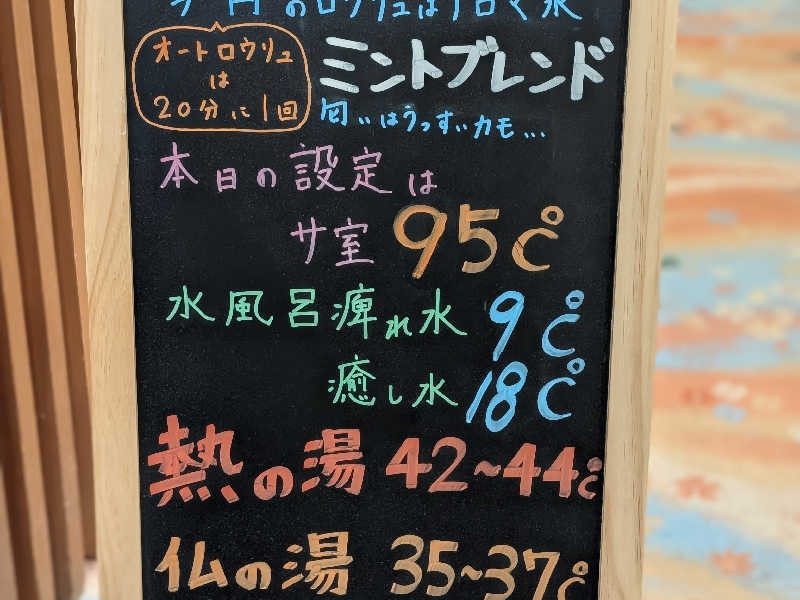 のロウリュはアロマ水
オートロウリュ
は
20分に1回
ミントブレンド
匂いはうっすぃカモ...
本日の設定は
サ室 95℃
水風呂痺れ水 9℃
癒し水 18℃
熱の湯 42~44℃
仏の湯 35~37℃